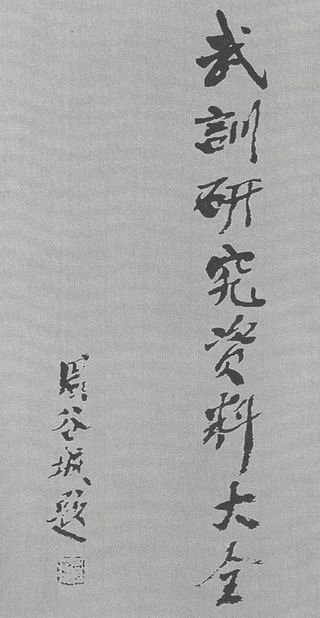 武訓研究资料大全
周谷城題